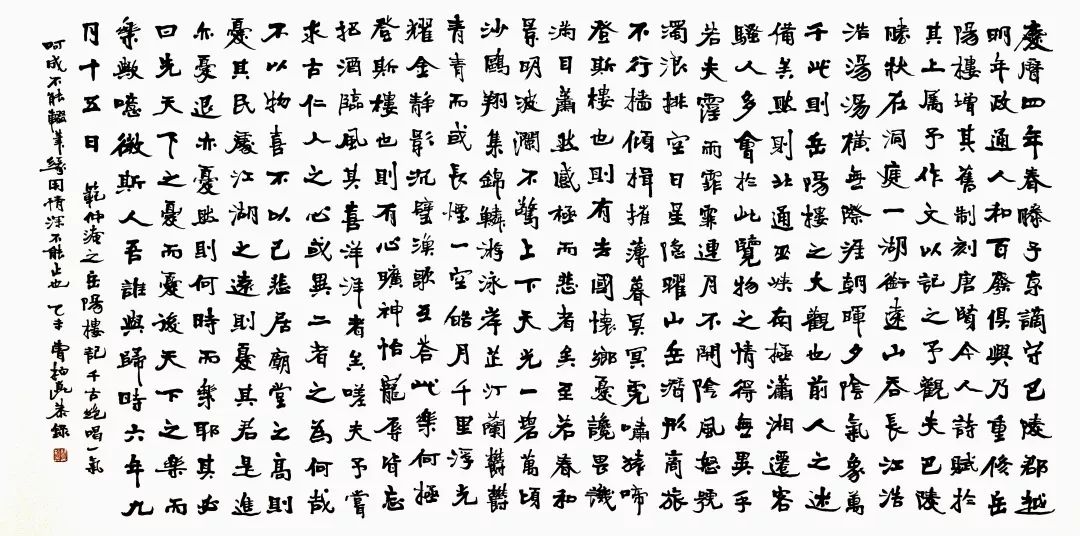 慶曆四年春滕子京謫守巴陵郡越
明年政通人和百廢俱興乃重修岳
陽樓增其舊制刻唐賢今人詩賦於
其上属予作文以記之予觀夫巴陵
勝狀在洞庭一湖銜遠山吞長江浩
浩湯湯橫無際涯朝暉夕陰氣象萬
千此則岳陽樓之大觀也前人之述
備矣然則北通巫峽南極瀟湘遷客
騷人多會於此覽物之情得無異乎
若夫霪雨霏霏連月不開陰風怒號
濁浪排空日星隱曜山岳潛形商旅
不行檣傾楫摧薄暮冥冥虎嘯猿啼
登斯樓也則有去國懷鄉憂讒畏譏
滿目蕭然感極而悲者矣至若春和
景明波瀾不驚上下天光一碧萬頃
沙鷗翔集錦鱗游泳岸芷汀蘭鬱鬱
青青而或長煙一空皓月千里浮光
耀金靜影沉璧漁歌互荅此樂何極
登斯樓也則有心曠神怡寵辱皆忘
把酒臨風其喜洋洋者矣嗟夫予嘗
求古仁人之心或異二者之為何哉
不以物喜不以己悲居廟堂之高則
憂其民處江湖之遠則憂其君是進
亦憂退亦憂然則何時而樂耶其必
曰先天下之憂而憂後天下之樂而
樂歟噫微斯人吾誰與歸時六年九
月十五日 範仲淹之岳陽樓記千古絕唱一氣
呵成不能輟筆緣因情深不能止也 乙未 曹恭錄